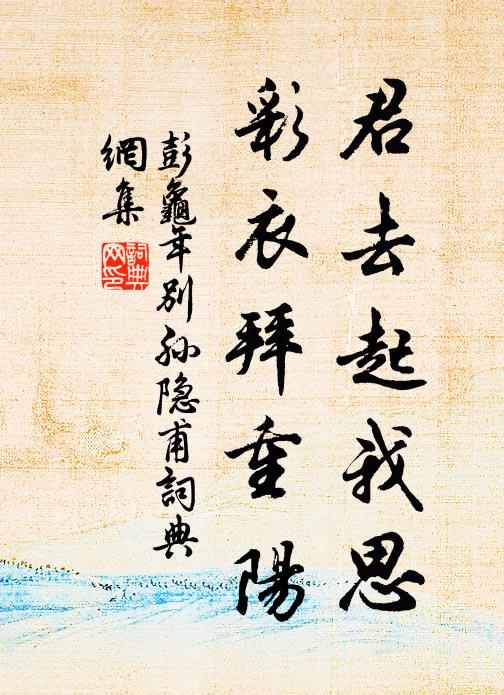 君去起我思
彩衣拜重陽
彭龜年别孙隐甫詞典
網集
詞典
网印